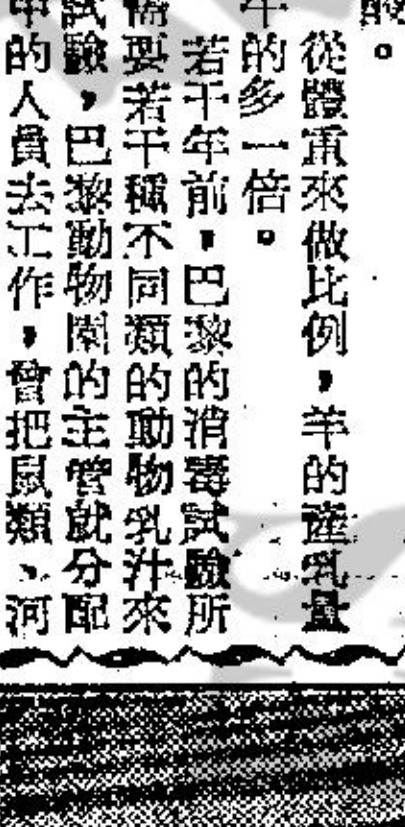 酸。
從體重來做比例，羊的產乳量
牛的多一倍。
若干年前，巴黎的消毒試驗所
需要若干種不同類的動物乳汁來
試驗，巴黎動物園的主管就分配
的人員去工作，曾把鼠類、河